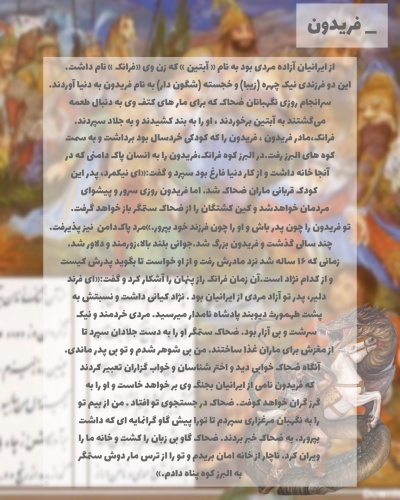 _ فریدون
از ایرانیان آزاده مردی بود به نام « آبتین » که زن وی «فرانک » نام داشت.
این دو فرزندی نیک چهره (زیبا) و خجسته (شگون دار) به نام فریدون به دنیا آوردند.
سرانجام روزی نگهبانان ضحاک که برای مار های کتف وی به دنبال طعمه
می‌گشتند به آبتین برخوردند ، او را به بند کشیدند و به جلاد سپردند.
فرانک،مادر فریدون ، فریدون را که کودکی خردسال بود برداشت و به سمت
کوه های البرز رفت.در البرز کوه فرانک،فریدون را به انسان پاک دامنی که در
آنجا خانه داشت و از کار دنیا فارغ بود سپرد و گفت:«ای نیکمرد، پدر این
کودک قربانی ماران ضحاک شد. اما فریدون روزی سرور و پیشوای
مردمان خواهدشد و کین کشتگان را از ضحاک ستمگر باز خواهد گرفت.
تو فریدون را چون پدر باش و او را چون فرزند خود بپرور.»مرد پاک‌دامن نیز پذیرفت.
چند سالی گذشت و فریدون بزرگ شد.جوانی بلند بالا،زورمند و دلاور شد.
زمانی که ۱۶ ساله شد نزد مادرش رفت و از او خواست تا بگوید پدرش کیست
و از کدام نژاد است.آن زمان فرانک راز پنهان را آشکار کرد و گفت:«ای فرزند
دلیر، پدر تو آزاد مردی از ایرانیان بود . نژاد کیانی داشت و نسبتش به
پشت طهمورث دیوبند پادشاه نامدار میرسید. مردی خردمند و نیک
سرشت و بی آزار بود. ضحاک ستمگر او را به دست جلادان سپرد تا
از مغزش برای ماران غذا ساختند. من بی شوهر شدم و تو بی پدر ماندی.
آنگاه ضحاک خوابی دید و اختر شناسان و خواب گزاران تعبیر کردند
که فریدون نامی از ایرانیان بجنگ وی بر خواهد خاست و او را به
گرز گران خواهد کوفت. ضحاک در جستجوی تو افتاد . من از بیم تو
را به نگهبان مرغزاری سپردم تا تورا پیش گاو گرانمایه ای که داشت
بپرورد. به ضحاک خبر بردند. ضحاک گاو بی زبان را کشت و خانه ما را
ویران کرد. ناچار از خانه امان بریدم و تو را از ترس مار دوش ستمگر
به البرز کوه پناه دادم.»